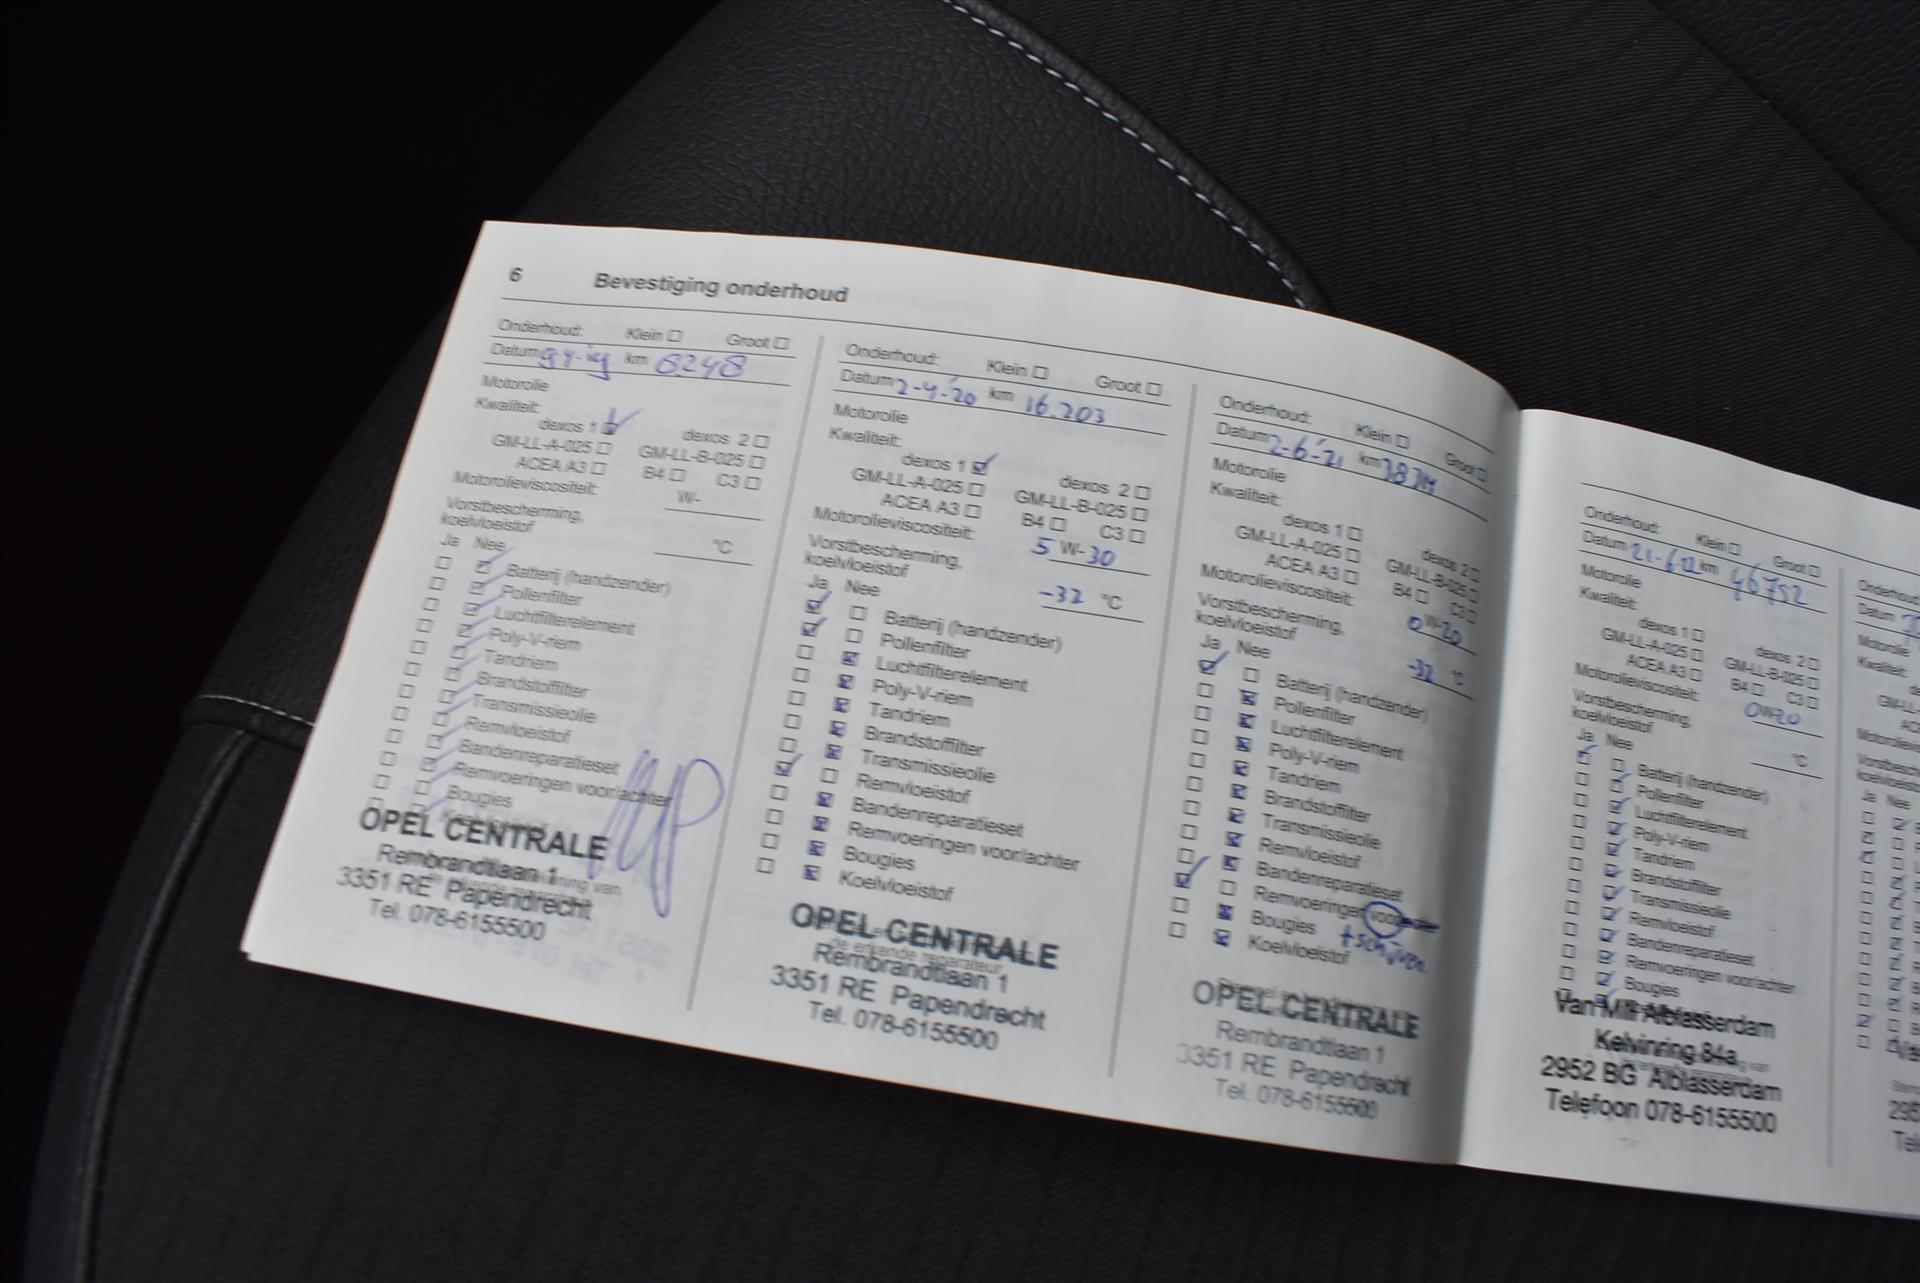 6 Bevestiging onderhoud
Onderhoud: Klein Groot
Datum km 8248
Motorolie
Kwaliteit:
dexos 1 dexos 2
GM-LL-A-025 GM-LL-B-025
ACEA A3 B4 C3
Motorolieviscositeit: W-
Vorstbescherming,
koelvloeistof °C
Ja Nee
Batterij (handzender)
Pollenfilter
Luchtfilterelement
Poly-V-riem
Tandriem
Brandstoffilter
Transmissieolie
Remvloeistof
Bandenreparatieset
Remvoeringen voor/achter
Bougies
OPEL CENTRALE
Rembrandtlaan 1
3351 RE Papendrecht
Tel. 078-6155500
Onderhoud: Klein Groot
Datum 2-4-'20 km 16.203
Motorolie
Kwaliteit:
dexos 1 dexos 2
GM-LL-A-025 GM-LL-B-025
ACEA A3 B4 C3
Motorolieviscositeit: 5 W-30
Vorstbescherming,
koelvloeistof -32 °C
Ja Nee
Batterij (handzender)
Pollenfilter
Luchtfilterelement
Poly-V-riem
Tandriem
Brandstoffilter
Transmissieolie
Remvloeistof
Bandenreparatieset
Remvoeringen voor/achter
Bougies
Koelvloeistof
OPEL CENTRALE
Rembrandtlaan 1
3351 RE Papendrecht
Tel. 078-6155500
Onderhoud: Klein Groot
Datum 2-6-'21 km
Motorolie
Kwaliteit:
dexos 1 dexos 2
GM-LL-A-025 GM-LL-B-025
ACEA A3 B4 C3
Motorolieviscositeit: 0 W-20
Vorstbescherming,
koelvloeistof -32 °C
Ja Nee
Batterij (handzender)
Pollenfilter
Luchtfilterelement
Poly-V-riem
Tandriem
Brandstoffilter
Transmissieolie
Remvloeistof
Bandenreparatieset
Remvoeringen voor
Bougies + schijven
Koelvloeistof
OPEL CENTRALE
Rembrandtlaan 1
3351 RE Papendrecht
Tel. 078-6155500
Onderhoud: Klein Groot
Datum km 46752
Motorolie
Kwaliteit:
dexos 1 dexos 2
GM-LL-A-025 GM-LL-B-025
ACEA A3 B4 C3
Motorolieviscositeit: 0W-20
Vorstbescherming,
koelvloeistof °C
Ja Nee
Batterij (handzender)
Pollenfilter
Luchtfilterelement
Poly-V-riem
Tandriem
Brandstoffilter
Transmissieolie
Remvloeistof
Bandenreparatieset
Remvoeringen voor/achter
Bougies
Van Mill Alblasserdam
Kelvinring 84a
2952 BG Alblasserdam
Telefoon 078-6155500
Datum
Motorolie
Kwaliteit:
Ja Nee